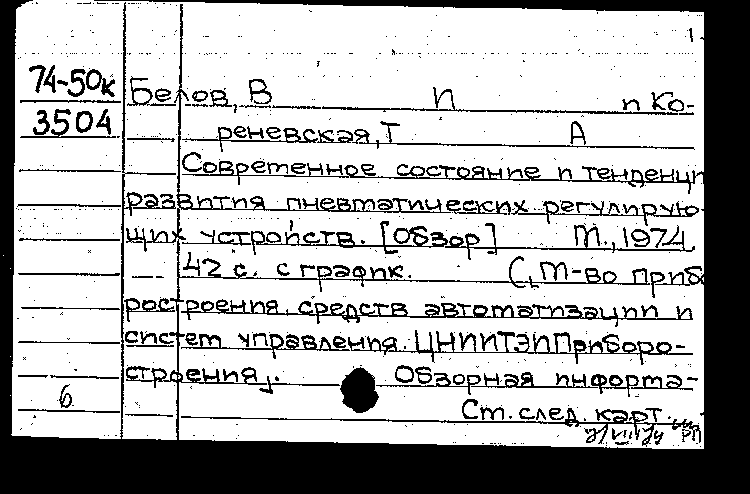 1.
74-50к
3504
Белов, В П и Ко-
реневская, Т А
Современное состояние и тенденции
развития пневматических регулирую-
щих устройств. [Обзор] М., 1974.
42 с. с график. (М-во прибо
ростроения, средств автоматизации и
систем управления. ЦНИИТЭИПриборо-
строения). Обзорная информа-
6 См. след. карт.
РП